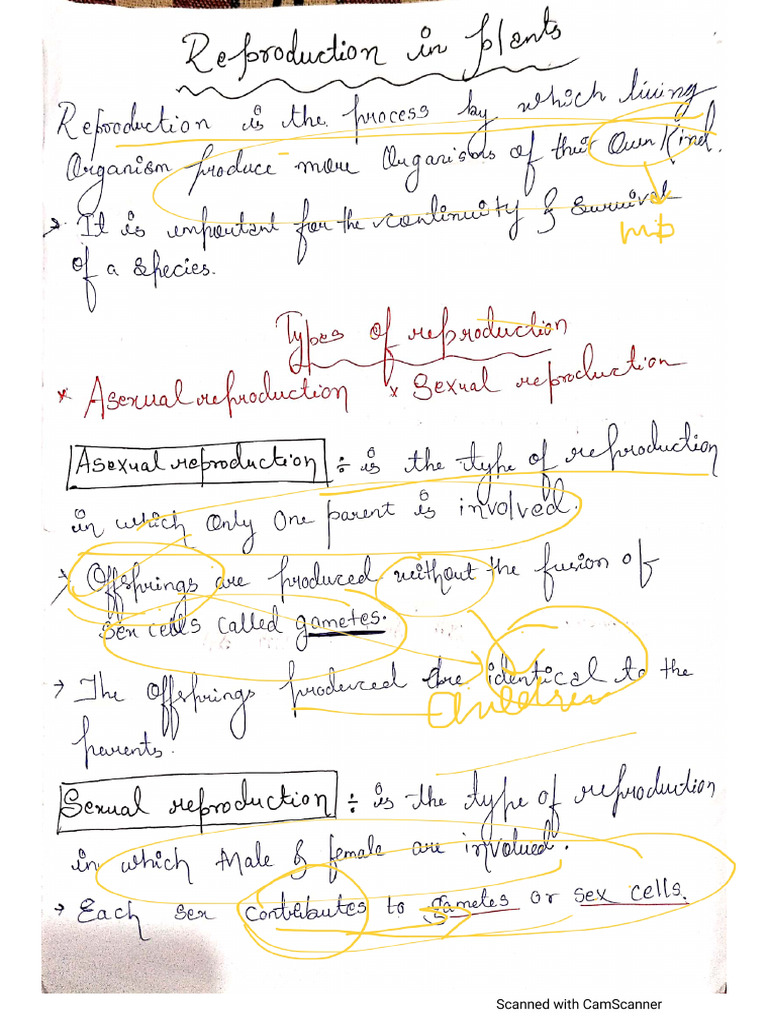 Reproduction in plants
Reproduction is the process by which living
Organism produce more Organisms of their Own Kind.
It is important for the continuity & survival
of a species.
Types of reproduction
* Asexual reproduction * Sexual reproduction
Asexual reproduction ÷ is the type of reproduction
in which Only One parent is involved.
→ Offsprings are produced without the fusion of
sex cells called gametes.
→ The Offsprings produced are identical to the
Children
parents.
Sexual reproduction ÷ is the type of reproduction
in which Male & female are involved.
→ Each sex contributes to gametes or sex cells.
Scanned with CamScanner